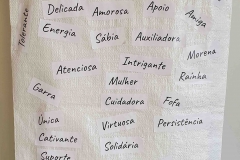 Tolerante
Delicada
Amorosa
Apoio
Amiga
Energia
Sábia
Auxiliadora
Morena
Atenciosa
Intrigante
Rainha
Mulher
Garra
Cuidadora
Fofa
Única
Virtuosa
Persistência
Cativante
Solidária
Suporte